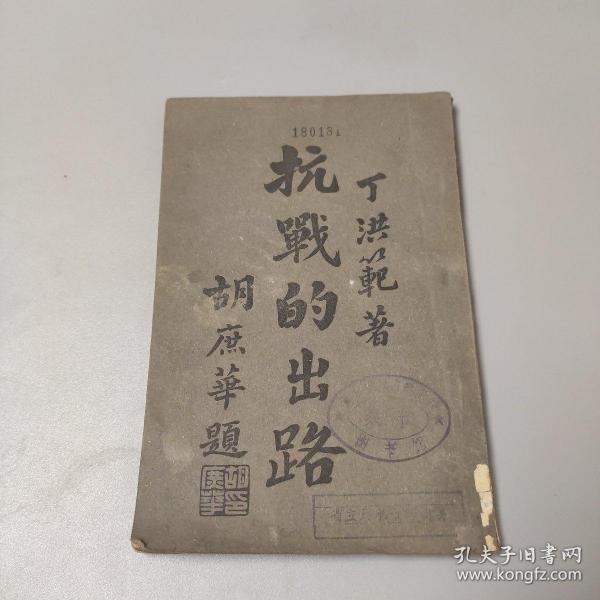 180181
丁洪範著
抗戰的出路
胡庶華題
孔夫子旧书网
www.kongfz.com